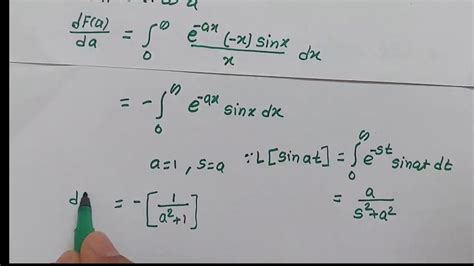 dF(a)/da = ∫₀^∞ e^-ax (-x) sinx / x dx
= - ∫₀^∞ e^-ax sinx dx
a=1 , s=a ∵ L[sinat] = ∫₀^∞ e^-st sinat dt
d = - [1/a²+1] = a/s²+a²